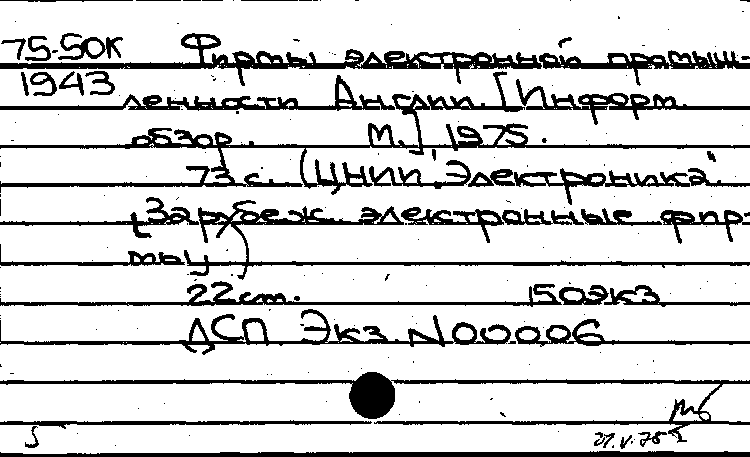 75-50К Фирмы электронной промыш-
1943 ленности Англии. [Информ.
обзор. М.] 1975.
73 с. (ЦНИИ "Электроника".
Зарубеж. электронные фир-
мы)
22 см. 150 экз.
ДСП Экз. N 00006
5 21.V.75